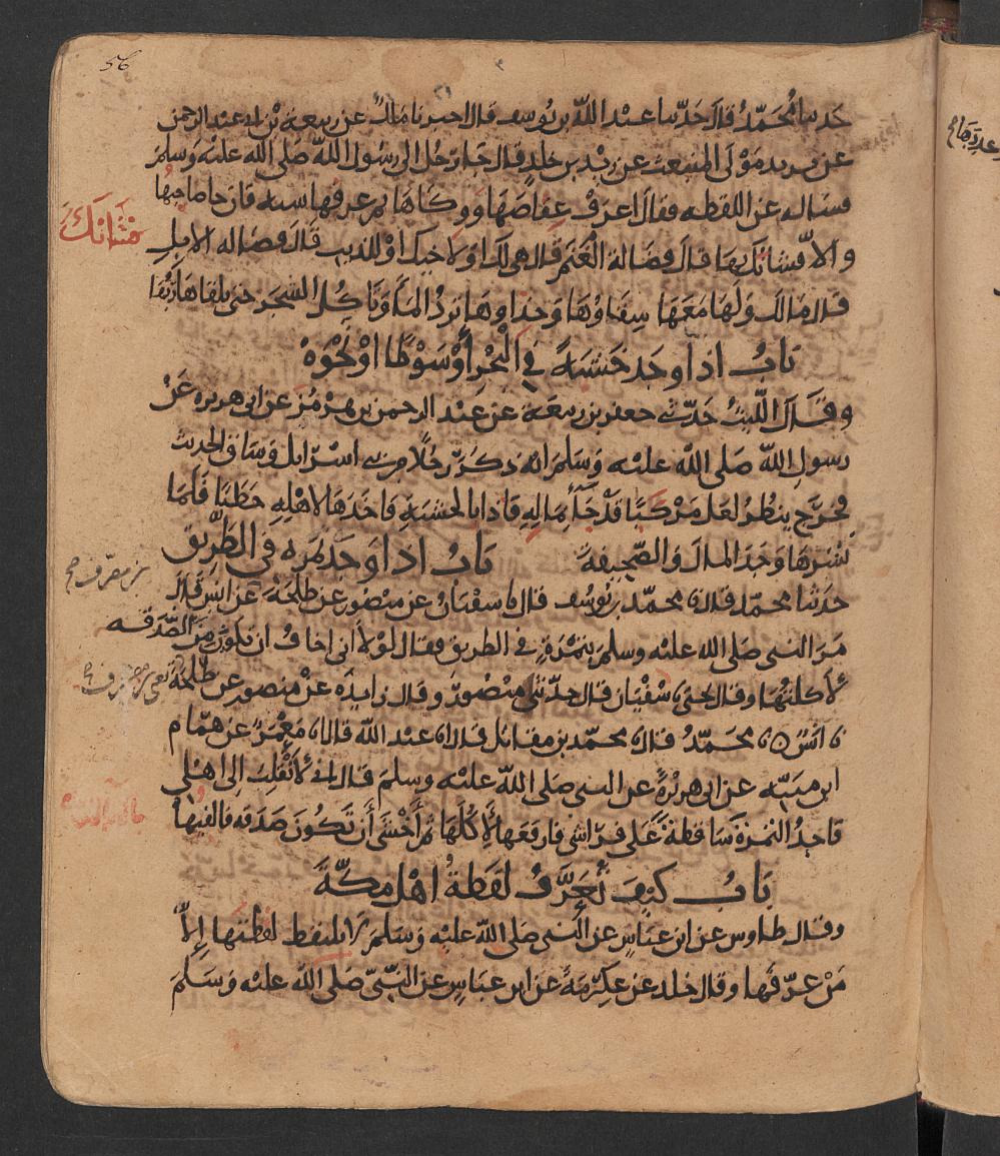 56
حدثنا محمد قال حدثنا عبد الله بن يوسف قال اخبرنا مالك عن ربيعة بن ابي عبد الرحمن
عن يزيد مولى المنبعث عن زيد بن خلد قال جا رجل الى رسول الله صلى الله عليه وسلم
فساله عن اللقطه فقال اعرف عفاصها ووكاها ثم عرفها سنه فان جا صاحبها
والا فشانك بها قال فضالة الغنم قال هي لك او لاخيك او للذيب قال فضاله الابل
فشانك
قال مالك ولها معها سقاوها وحذاوها ترد الما وتاكل الشجر حتى يلقاها ربها
باب اذا وجد خشبة في البحر او سوطا او نحوه
وقال الليث حدثني جعفر بن ربيعة عن عبد الرحمن بن هرمز عن ابي هريره عن
رسول الله صلى الله عليه وسلم انه ذكر رجلا من بني اسرايل وساق الحديث
فخرج ينظر لعل مركبا قد جا بماله فاذا بالخشبة فاخذها لاهله حطبا فلما
نشرها وجد المال والصحيفة باب اذا وجد تمره في الطريق
حدثنا محمد قال نا محمد بن يوسف قال نا سفيان عن منصور عن طلحة عن انس قال
مر النبي صلى الله عليه وسلم بتمرة في الطريق فقال لولا اني اخاف ان تكون من الصدقه
لاكلتها وقال يحيى نا سفيان قال حدثني منصور وقال زايده عن منصور عن طلحة
نا انس نا محمد قال نا محمد بن مقاتل قال انا عبد الله قال انا معمر عن همام
ابن منبه عن ابي هريرة عن النبي صلى الله عليه وسلم قال اني لانقلب الى اهلي
فاجد التمرة ساقطة على فراشي فارفعها لاكلها ثم اخشى أن تكون صدقه فالقيها
باب كيف تعرف لقطة اهل مكة
وقال طاوس عن ابن عباس عن النبي صلى الله عليه وسلم لا يلتقط لقطتها إلا
من عرفها وقال خلد عن عكرمة عن ابن عباس عن النبي صلى الله عليه وسلم